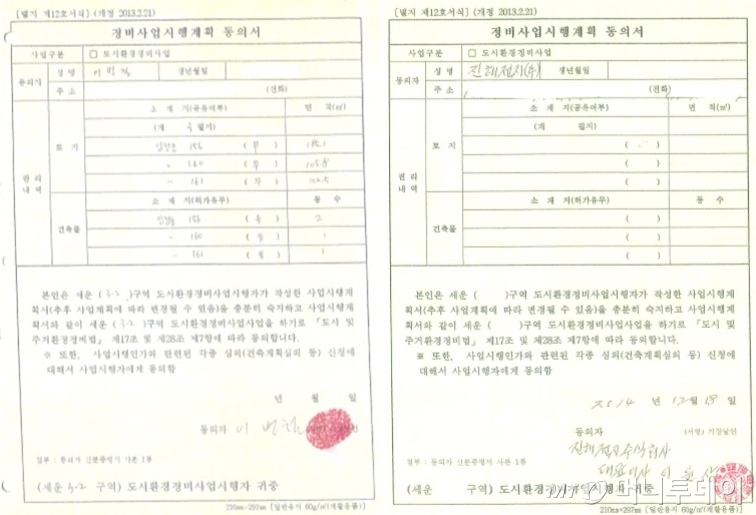 [별지 제12호서식] (개정 2013.2.21)
정비사업시행계획 동의서
사업구분 □ 도시환경정비사업
동의자 성 명 생년월일
주 소 (전화)
권리내역 토 지 소 재 지(공유여부) 면 적(㎡)
(계 3 필지)
156 ( 부 )
〃 160 ( 부 ) 105.8
〃 161 ( 부 )
건축물 소 재 지(허가유무) 동 수
156 ( 유 ) 2
〃 160 ( 유 ) 1
〃 161 ( 유 ) 1
본인은 세운 ( 3-2 )구역 도시환경정비사업시행자가 작성한 사업시행계
획서(추후 사업계획에 따라 변경될 수 있음)을 충분히 숙지하고 사업시행계
획서와 같이 세운 ( 3-2 )구역 도시환경정비사업을 하기로 『도시 및
주거환경정비법』 제17조 및 제28조 제7항에 따라 동의합니다.
※ 또한, 사업시행인가와 관련된 각종 심의(건축계획심의 등) 신청에
대해서 사업시행자에게 동의함
년 월 일
동의자
첨부 : 동의자 신분증명서 사본 1부
(세운 3-2 구역) 도시환경정비사업시행자 귀중
210㎜×297㎜ [일반용지 60g/㎡(재활용품)]
[별지 제12호서식] (개정 2013.2.21)
정비사업시행계획 동의서
사업구분 □ 도시환경정비사업
동의자 성 명 진해전지(주) 생년월일
주 소 (전화)
권리내역 토 지 소 재 지(공유여부) 면 적(㎡)
(계 필지)
( )
( )
( )
건축물 소 재 지(허가유무) 동 수
( )
( )
( )
본인은 세운 ( )구역 도시환경정비사업시행자가 작성한 사업시행계
획서(추후 사업계획에 따라 변경될 수 있음)을 충분히 숙지하고 사업시행계
획서와 같이 세운 ( )구역 도시환경정비사업을 하기로 『도시 및
주거환경정비법』 제17조 및 제28조 제7항에 따라 동의합니다.
※ 또한, 사업시행인가와 관련된 각종 심의(건축계획심의 등) 신청에
대해서 사업시행자에게 동의함
2014 년 12월 18일
동의자 (서명) 지장날인
주식회사
대표이사
첨부 : 동의자 신분증명서 사본 1부
(세운 구역) 도시환경정비사업시행자 귀중
머니투데이
210㎜×297㎜ [일반용지 60g/㎡(재활용품)]